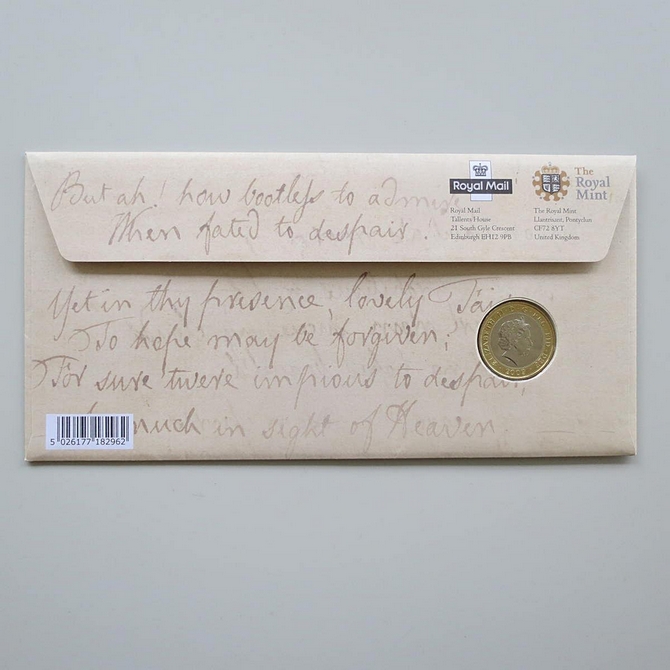 But ah! how bootless to admire
When fated to despair.
Royal Mail
Royal Mail
Tallents House
21 South Gyle Crescent
Edinburgh EH12 9PB
The
Royal
Mint
The Royal Mint
Llantrisant, Pontyclun
CF72 8YT
United Kingdom
Yet in thy presence, lovely Fair
To hope may be forgiven;
For sure twere impious to despair,
much in sight of Heaven.
5 026177 182962
ELIZABETH
2009